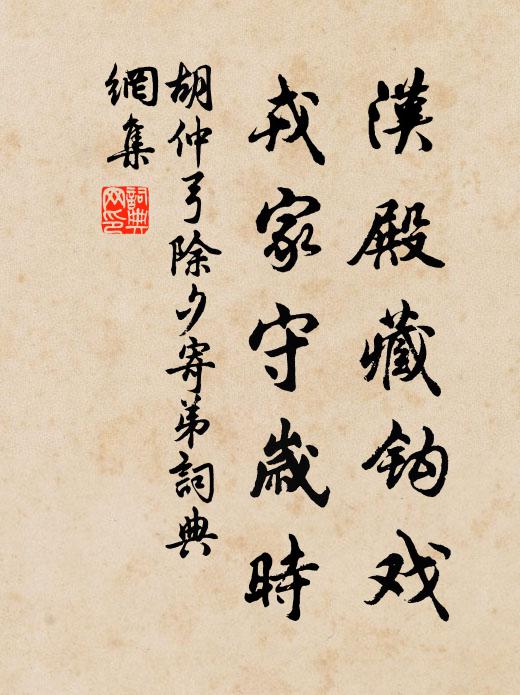 漢殿藏鈎戏
戎家守歲時
胡仲弓除夕寄弟詞典
網集
詞典網印